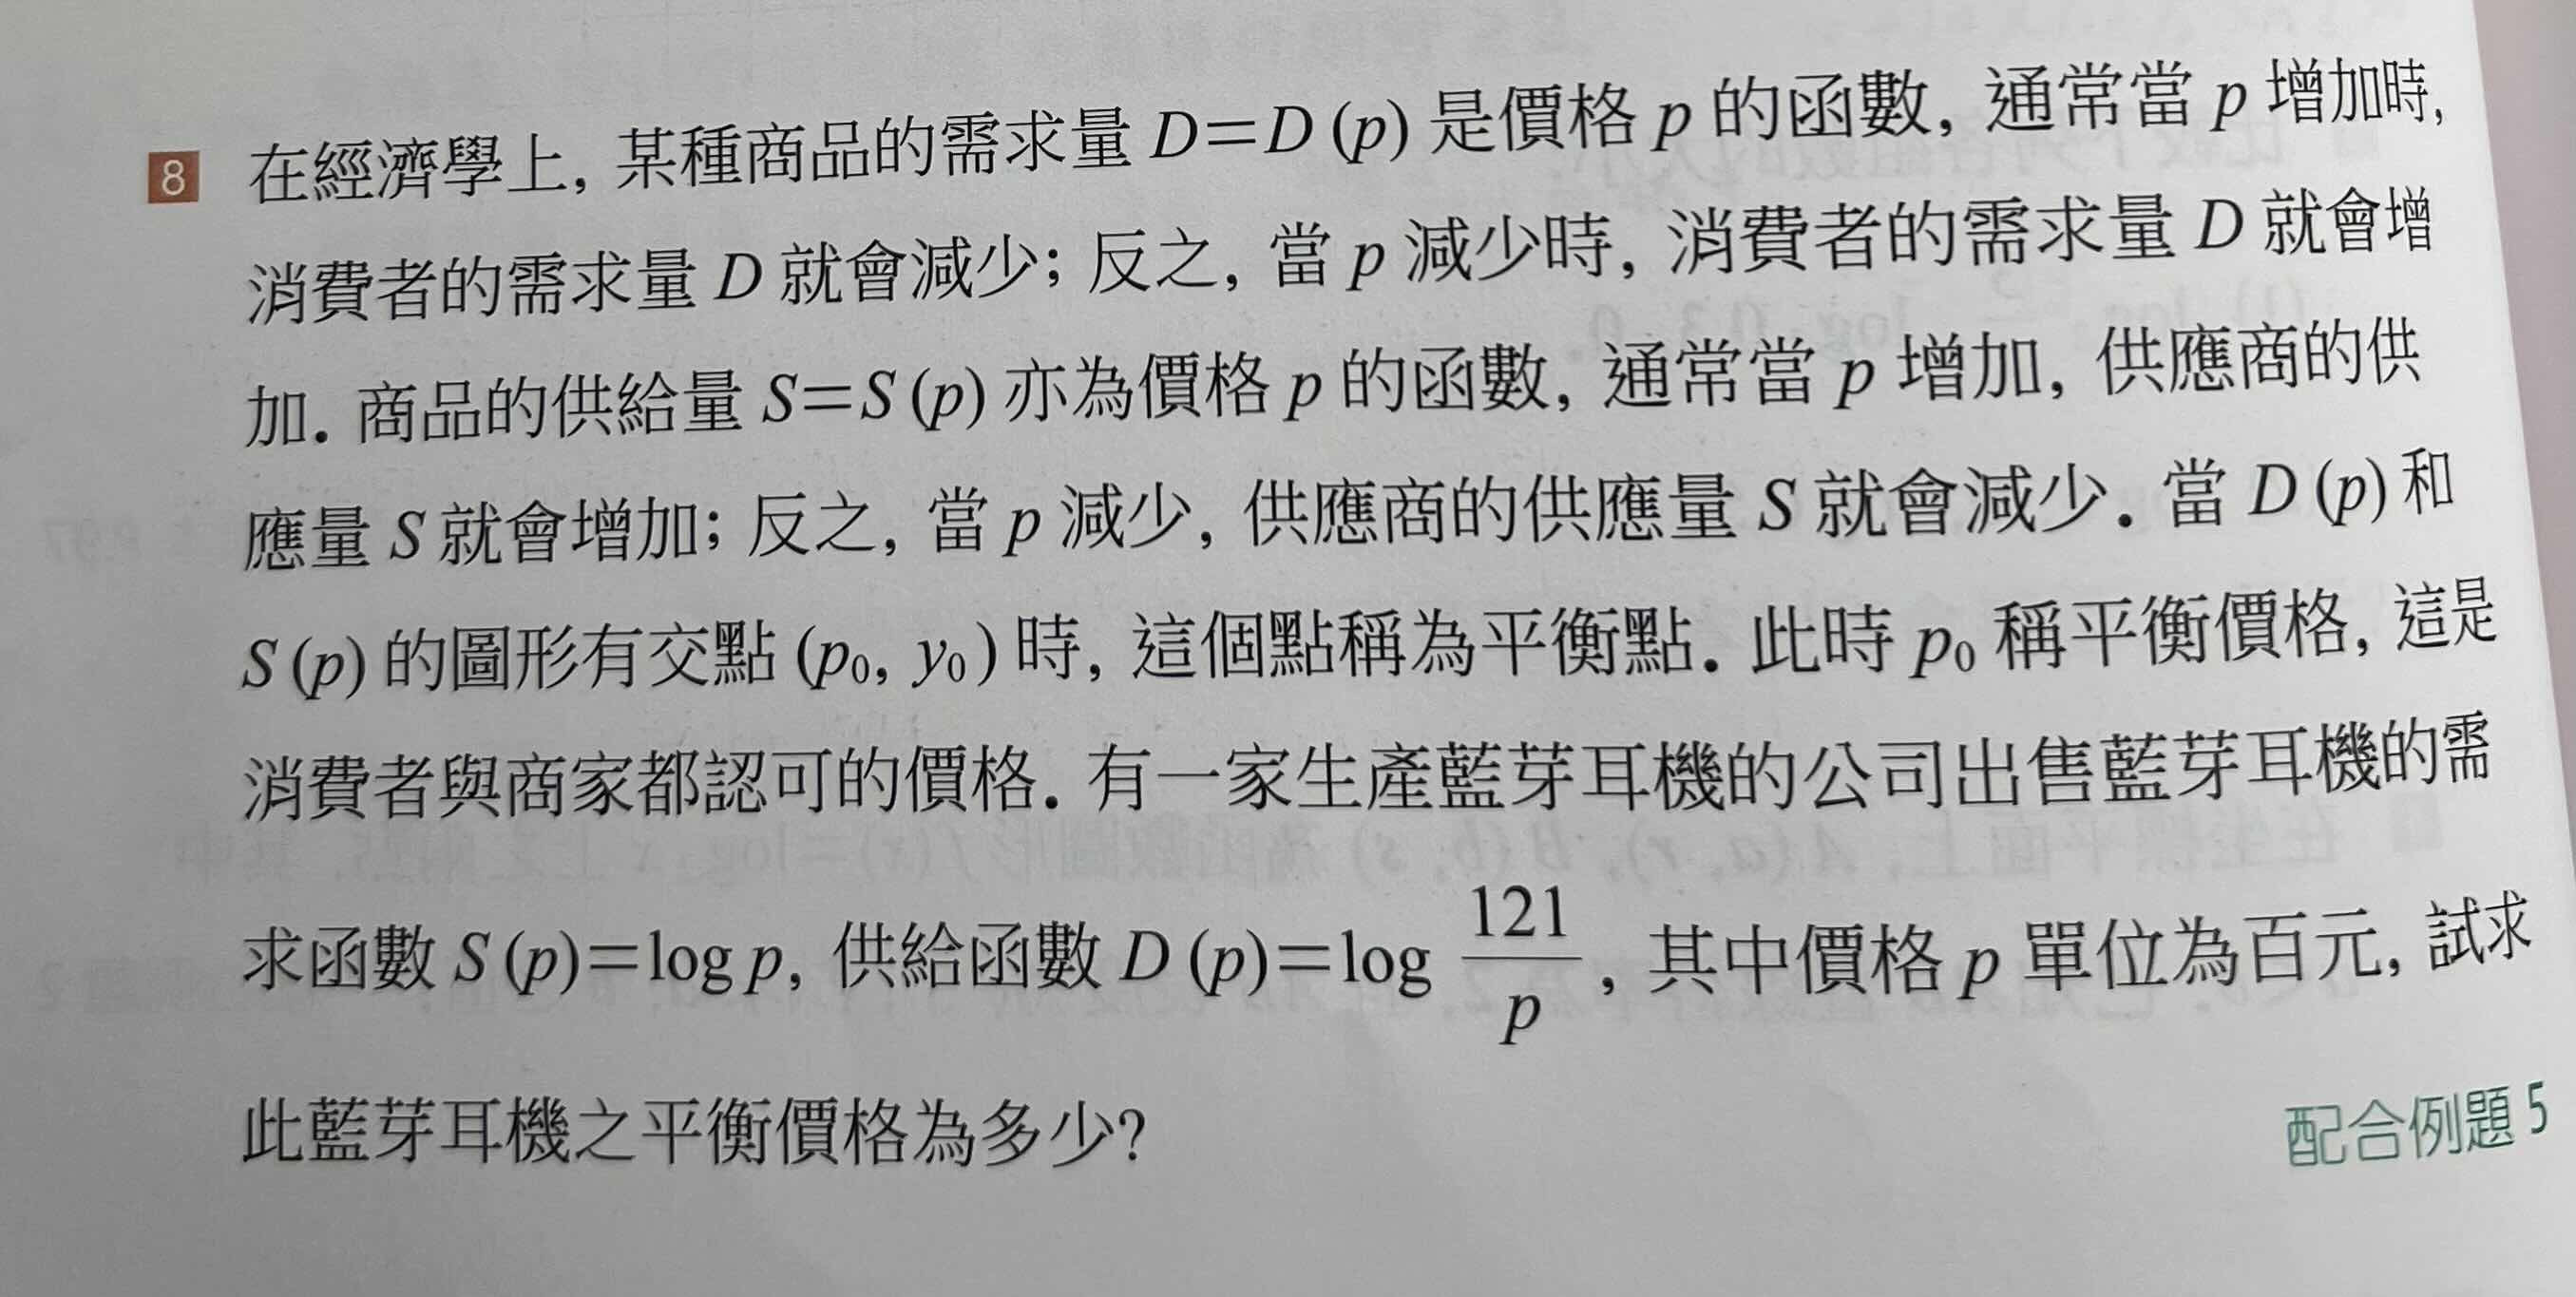 8 在經濟學上, 某種商品的需求量 D=D (p) 是價格 p 的函數, 通常當 p 增加時,
消費者的需求量 D 就會減少; 反之, 當 p 減少時, 消費者的需求量 D 就會增
加. 商品的供給量 S=S (p) 亦為價格 p 的函數, 通常當 p 增加, 供應商的供
應量 S 就會增加; 反之, 當 p 減少, 供應商的供應量 S 就會減少. 當 D (p) 和
S (p) 的圖形有交點 (p₀, y₀) 時, 這個點稱為平衡點. 此時 p₀ 稱平衡價格, 這是
消費者與商家都認可的價格. 有一家生產藍芽耳機的公司出售藍芽耳機的需
求函數 S (p)=log p, 供給函數 D (p)=log 121/p, 其中價格 p 單位為百元, 試求
此藍芽耳機之平衡價格為多少?
配合例題 5